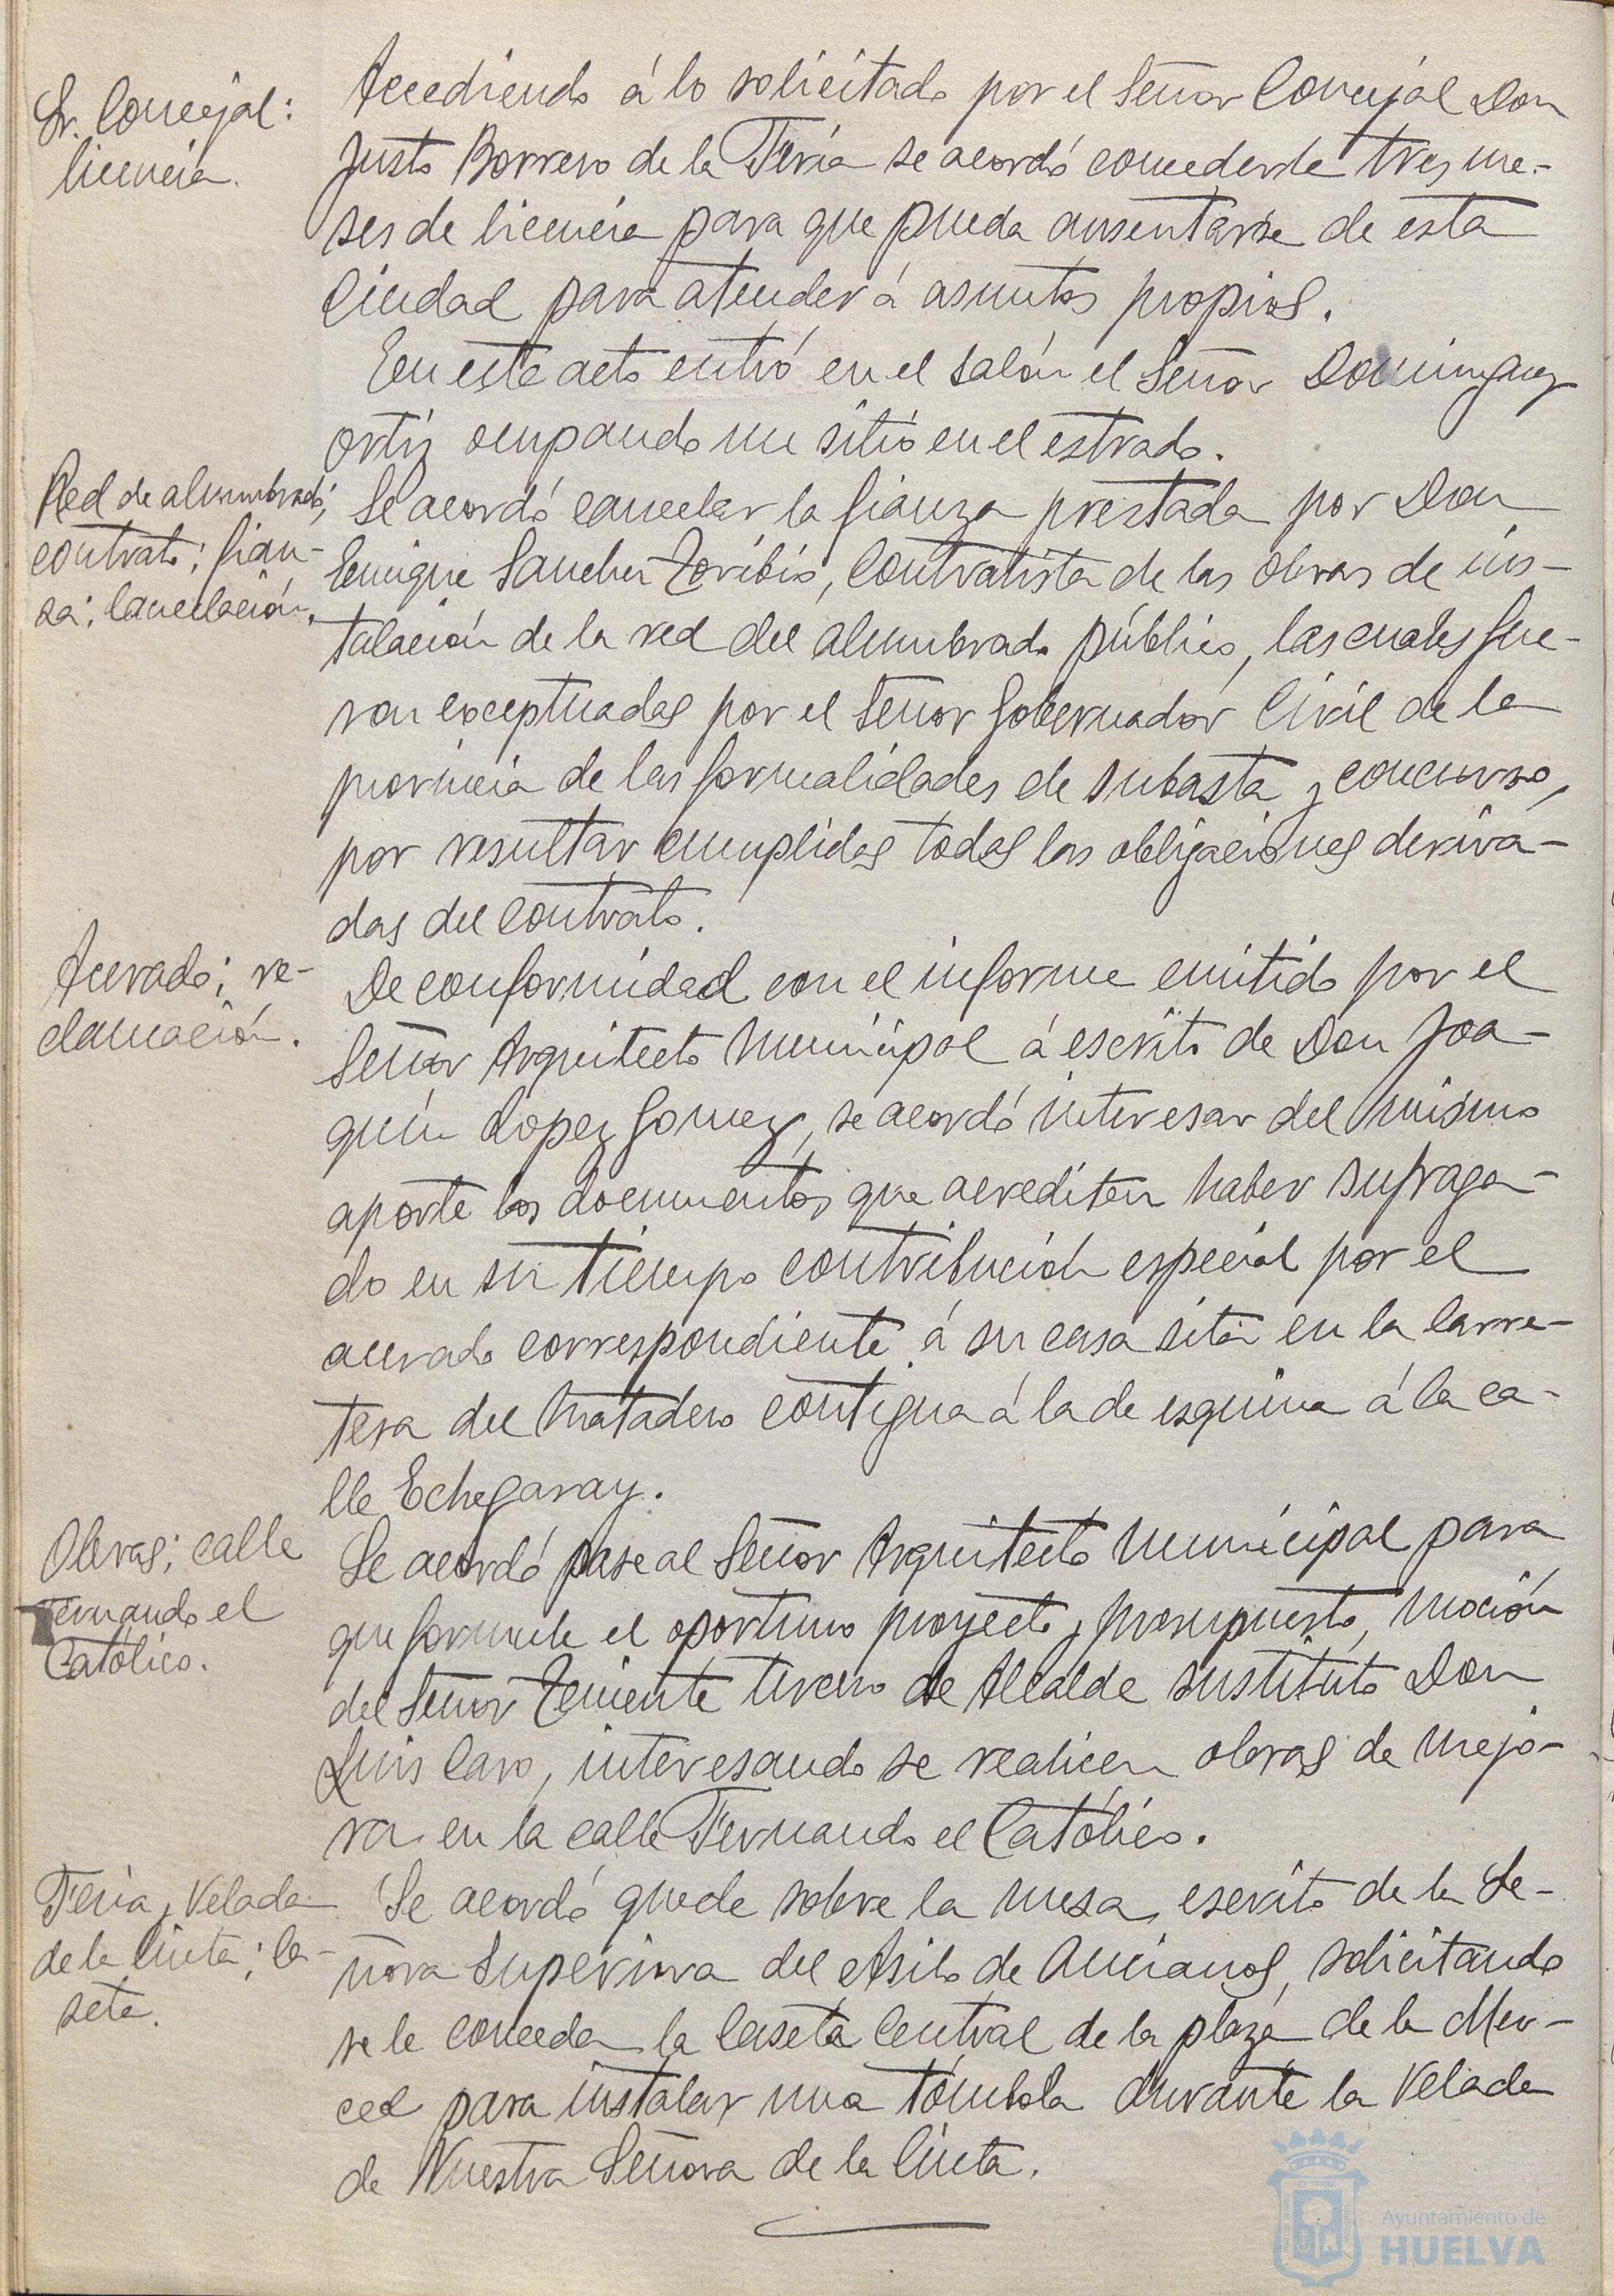 Sr. Concejal:
licencia.
Accediendo á lo solicitado por el Señor Concejal Don
Justo Borrero de la Feria se acordó concederle tres me-
ses de licencia para que pueda ausentarse de esta
Ciudad para atender á asuntos propios.
En este acto entró en el salón el Señor Dominguez
Ortiz ocupando un sitio en el estrado.
Red de alumbrado;
contrato; fian-
za; cancelación.
Se acordó cancelar la fianza prestada por Don
Enrique Sanchez Toribio, Contratista de las obras de ins-
talación de la red del alumbrado público, las cuales fue-
ron exceptuadas por el Señor Gobernador Civil de la
provincia de las formalidades de subasta y concurso,
por resultar cumplidas todas las obligaciones deriva-
das del contrato.
Acerado; re-
clamación.
De conformidad con el informe emitido por el
Señor Arquitecto Municipal á escrito de Don Joa-
quín Lopez Gomez, se acordó interesar del mismo
aporte los documentos que acrediten haber sufraga-
do en su tiempo contribución especial por el
acerado correspondiente á su casa sita en la carre-
tera del Matadero contigua á la de esquina á la ca-
lle Echegaray.
Obras; calle
Fernando el
Católico.
Se acordó pase al Señor Arquitecto Municipal para
que formule el oportuno proyecto y presupuesto, moción
del Señor Teniente tercero de Alcalde sustituto Don
Luis Caro, interesando se realicen obras de mejo-
ra en la calle Fernando el Católico.
Feria y Velada
de la Cinta; ca-
seta.
Se acordó quede sobre la mesa, escrito de la Se-
ñora Superiora del Asilo de Ancianos, solicitando
se le conceda la Caseta Central de la plaza de la Mer-
ced para instalar una tómbola durante la Velada
de Nuestra Señora de la Cinta.
Ayuntamiento de
HUELVA